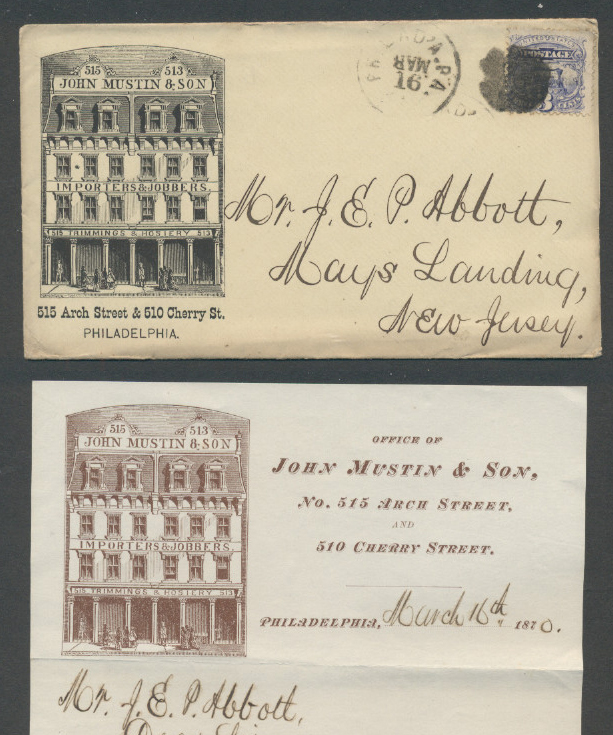 515 513
JOHN MUSTIN & SON
IMPORTERS & JOBBERS.
515 TRIMMINGS & HOSIERY 513
515 Arch Street & 510 Cherry St.
PHILADELPHIA.
MAR
16
PA.
POSTAGE
3
Mr. J. E. P. Abbott,
Mays Landing,
New Jersey.
515 513
JOHN MUSTIN & SON
IMPORTERS & JOBBERS.
515 TRIMMINGS & HOSIERY 513
OFFICE OF
JOHN MUSTIN & SON,
No. 515 ARCH STREET,
AND
510 CHERRY STREET.
PHILADELPHIA, March 16th 1870.
Mr. J. E. P. Abbott,
Dear Sir